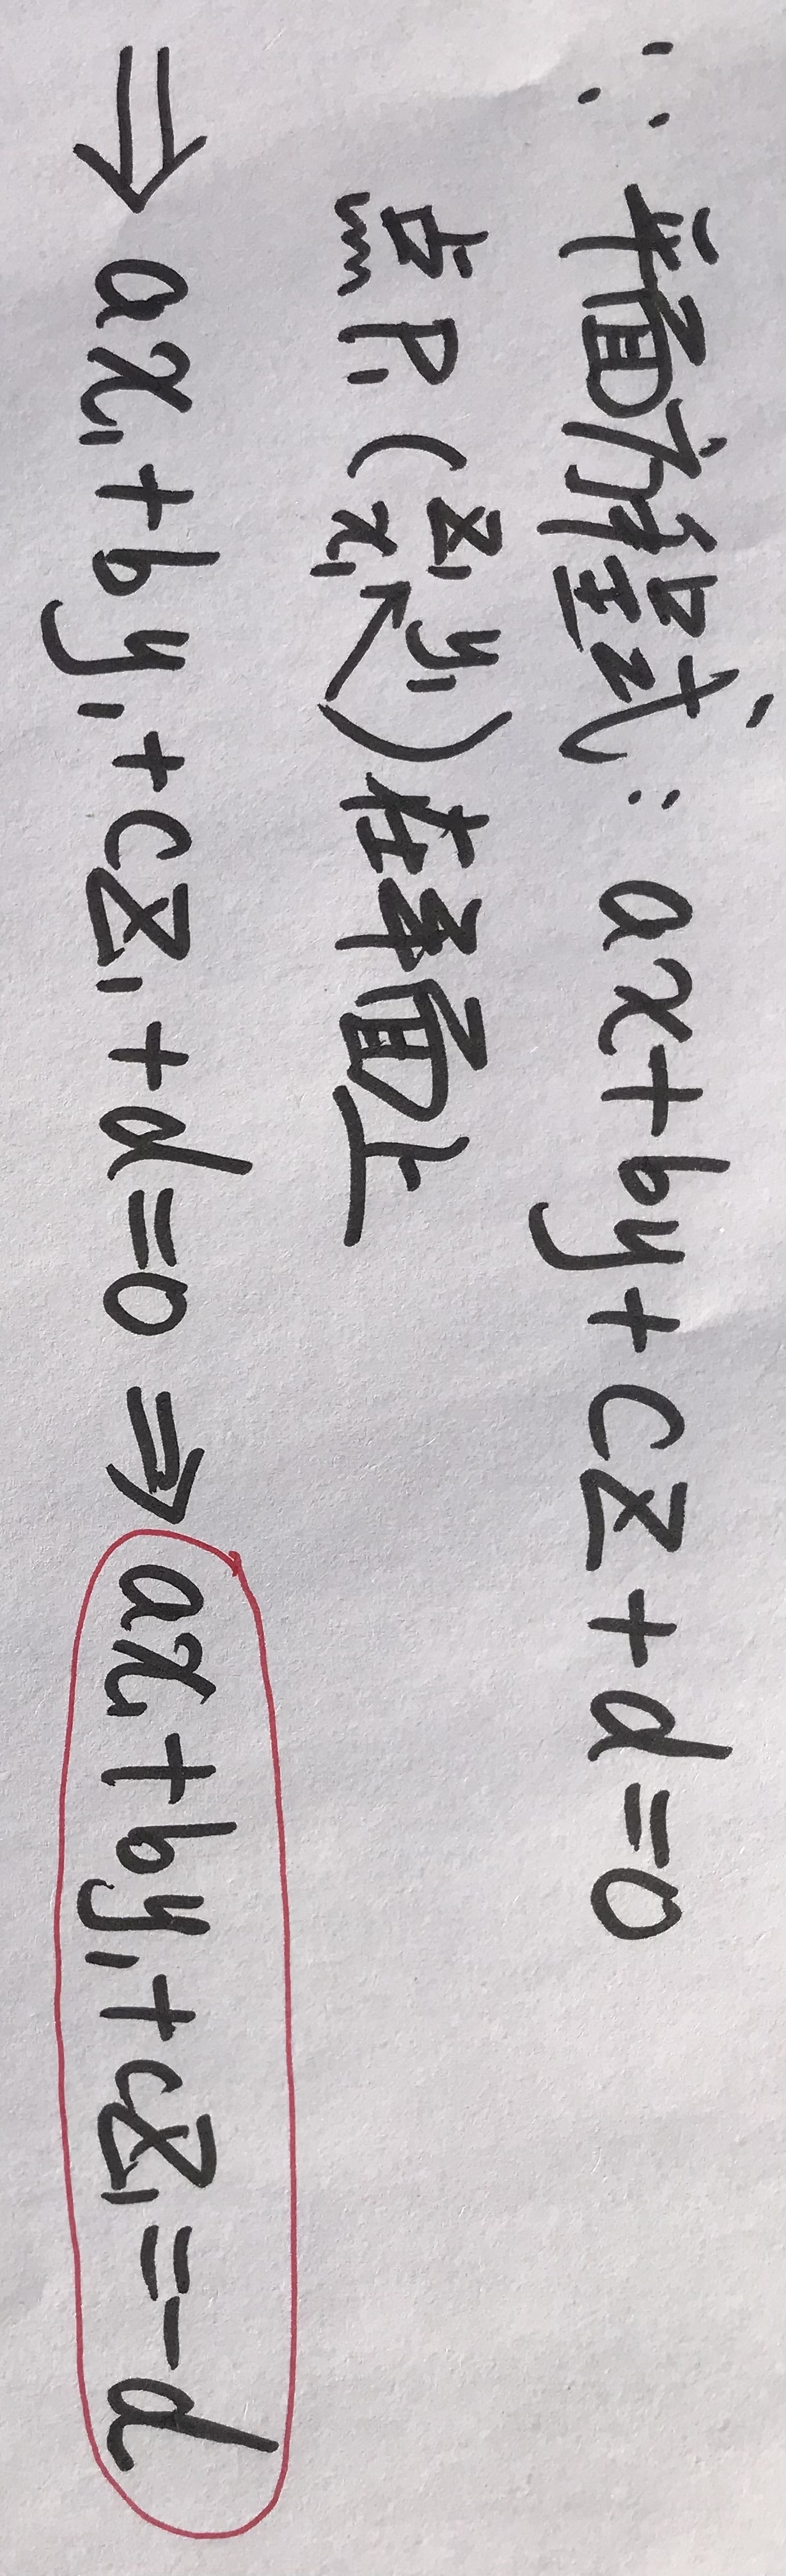 ∵ 平面方程式: ax+by+cz+d=0
点P₁(z₁ y₁ x₁)在平面上
⇒ ax₁+by₁+cz₁+d=0 ⇒ ax₁+by₁+cz₁=-d